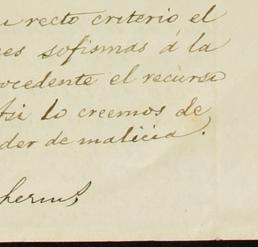 recto criterio el
sofismas á la
ocedente el recurso
lo creemos de
der de malicia.